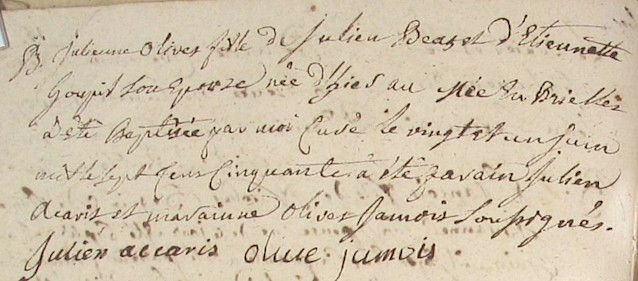 B Julienne Olives fille de Julien Beaz et d'Etiennette
Goupil son Epouze née d'hier au Mée En Brielles
à été Baptisée par moi Curé le vingt et un Juin
mil sept cens Cinquante à été parain Julien
Acaris et maraine Olives Jamois Soussignés.
Julien accaris olive jamois